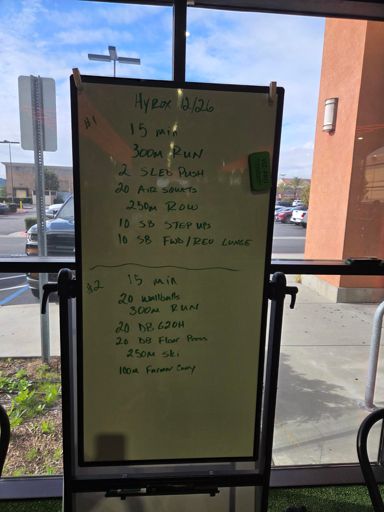 Hyrox 12/26
#1
15 min
300m RUN
2 SLED PUSH
20 AIR SQUATS
250m ROW
10 SB STEP UPS
10 SB FWD/REV LUNGE
#2
15 min
20 Wallballs
300m RUN
20 DB G2OH
20 DB Floor Press
250m Ski
100m Farmer Carry